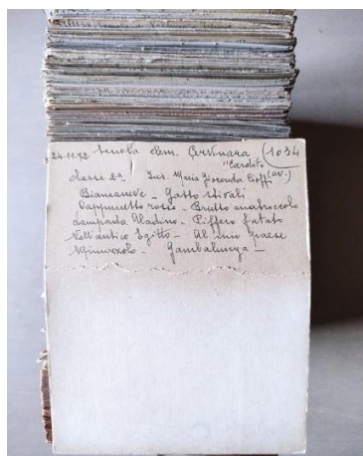 24-11-72 Scuola Elem. Cervinara (1034
"Cardito"
classe 2ª Ins. Maria Gioconda Cioffi (AV.)
Biancaneve - Gatto stivali
Cappuccetto rosso - Brutto anatroccolo
Lampada Aladino - Piffero fatato
Nell'antico Egitto - Al mio paese
Mignolo - Gambalunga -